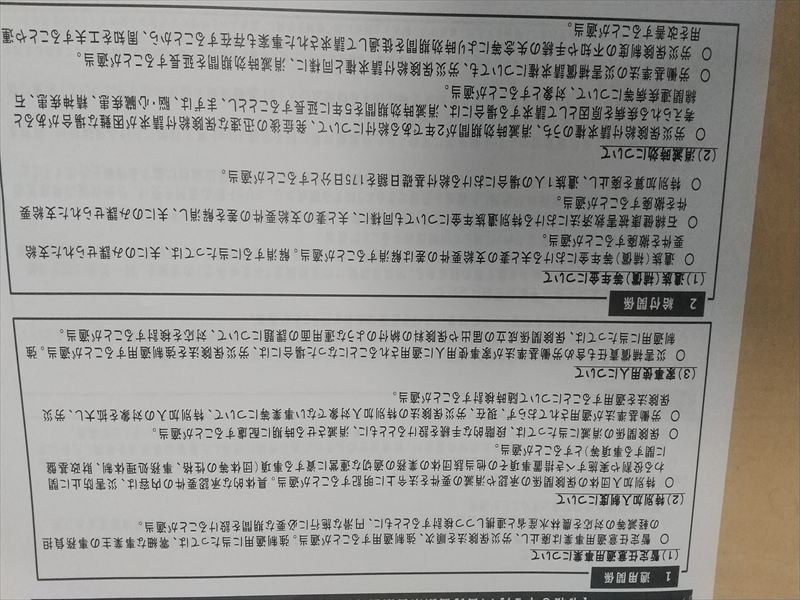 1 適用関係
(1)暫定任意適用事業について
○ 暫定任意適用事業は廃止し、労災保険法を順次、強制適用することが適当。強制適用に当たっては、零細な事業主の事務負担
の軽減等の対応を農林水産省と連携しつつ検討するとともに、円滑な施行に必要な期間を設けることが適当。
(2)特別加入制度について
○ 特別加入団体の保険関係の承認や消滅の要件を法令上に明記することが適当。具体的な承認要件の内容は、災害防止に関
わる役割や実施すべき措置事項その他当該団体の業務の適切な運営に資する事項(団体等の性格、事務処理体制、財政基盤
に関する事項等)とすることが適当。
○ 保険関係の消滅に当たっては、段階的な手続を設けるとともに、消滅させる時期に配慮することが適当。
○ 労働基準法が適用されておらず、現在、労災保険法の特別加入対象でない事業等について、特別加入の対象を拡大し、労災
保険法を適用することについて随時検討することが適当。
(3)家事使用人について
○ 災害補償責任も含め労働基準法が家事使用人に適用されることになった場合には、労災保険法を強制適用することが適当。強
制適用に当たっては、保険関係成立の届出や保険料の納付のような運用面の課題について、対応を検討することが適当。
2 給付関係
(1)遺族(補償)等年金について
○ 遺族(補償)等年金における夫と妻の支給要件の差は解消することが適当。解消するに当たっては、夫にのみ課せられた支給
要件を撤廃することが適当。
○ 石綿健康被害救済法における特別遺族年金についても同様に、夫と妻の支給要件の差を解消し、夫にのみ課せられた支給要
件を撤廃することが適当。
○ 特別加算を廃止し、遺族1人の場合における給付基礎日額を175日分とすることが適当。
(2)消滅時効について
○ 労災保険給付請求権のうち、消滅時効期間が2年である給付について、発症後の迅速な保険給付請求が困難な場合があると
考えられる疾病を原因として請求する場合には、消滅時効期間を5年に延長することとし、まずは、脳・心臓疾患、精神疾患、石
綿関連疾病等について、対象とすることが適当。
○ 労働基準法の災害補償請求権についても、労災保険給付請求権と同様に、消滅時効期間を延長することが適当。
○ 労災保険制度の不知や手続の失念等により時効期間を徒過して請求された事案も存在することから、周知等を工夫することや運
用を改善することが適当。